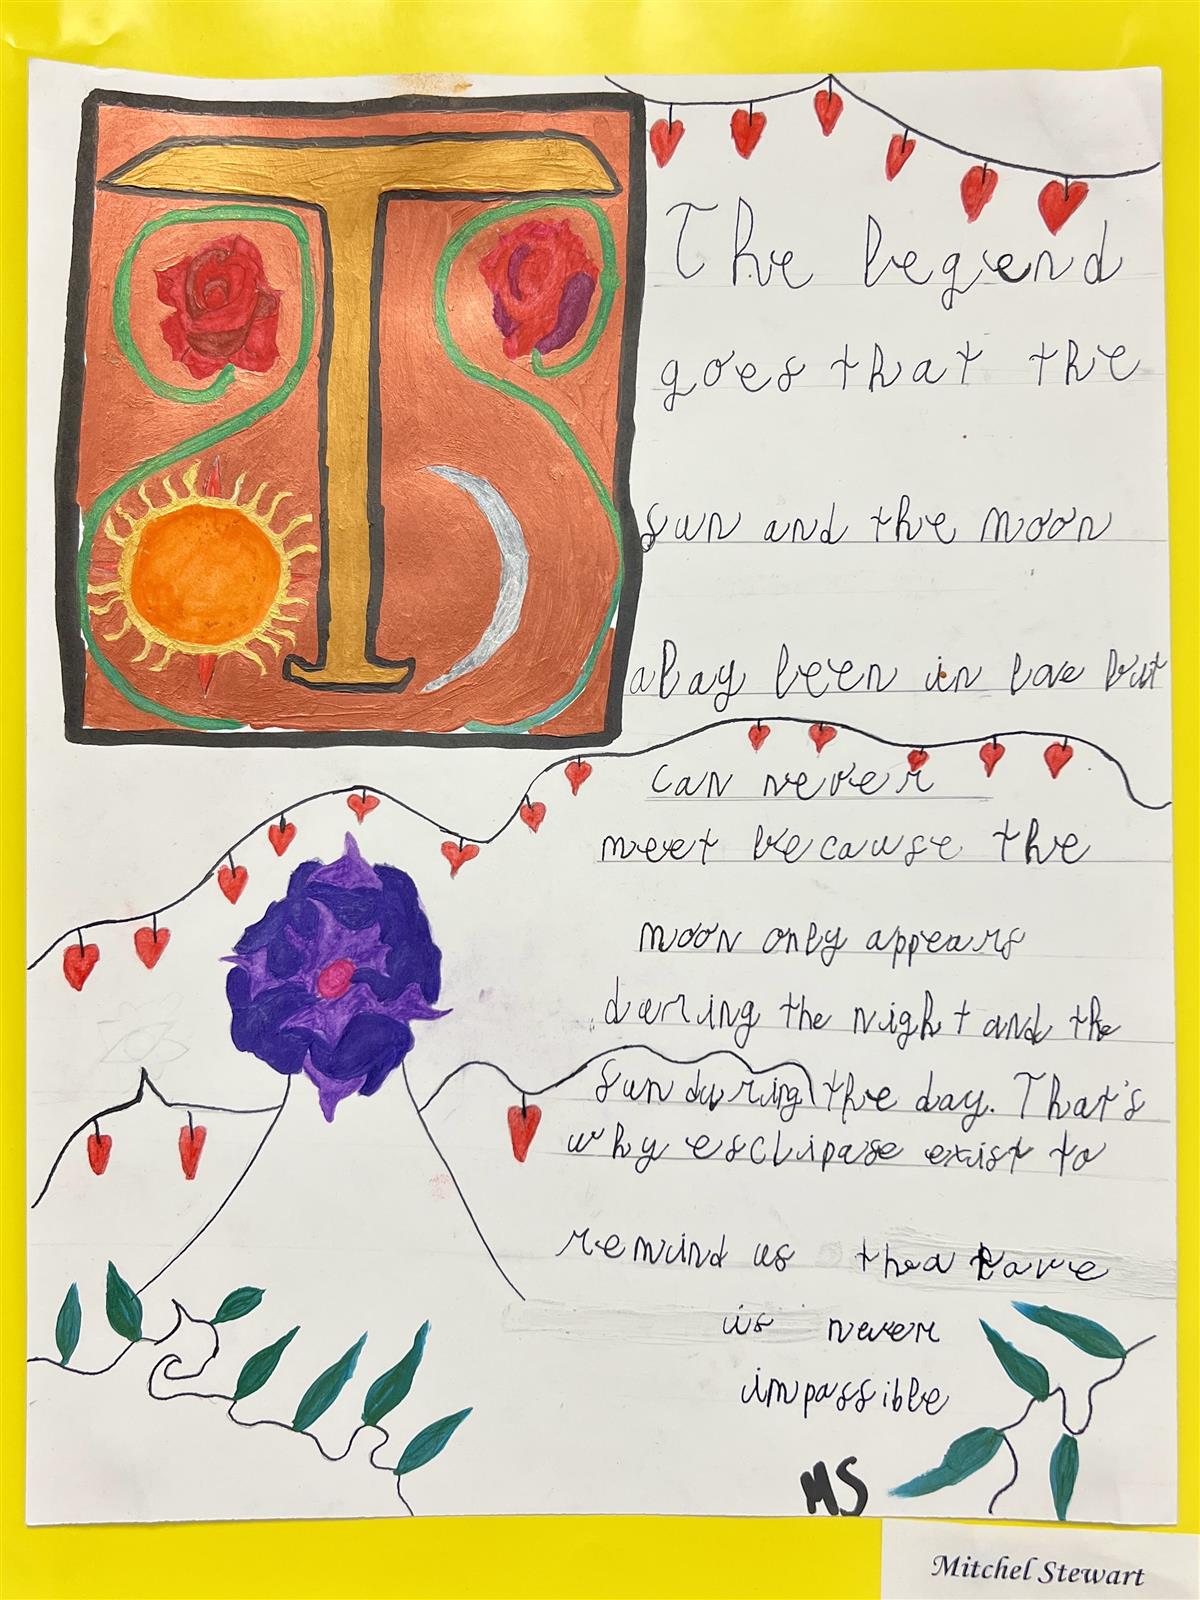 T
The legend
goes that the
sun and the moon
alay been in love but
can never
meet because the
moon only appears
during the night and the
sun during the day. That's
why esclipase exist to
remind us that love
is never
impassible
MS
Mitchel Stewart